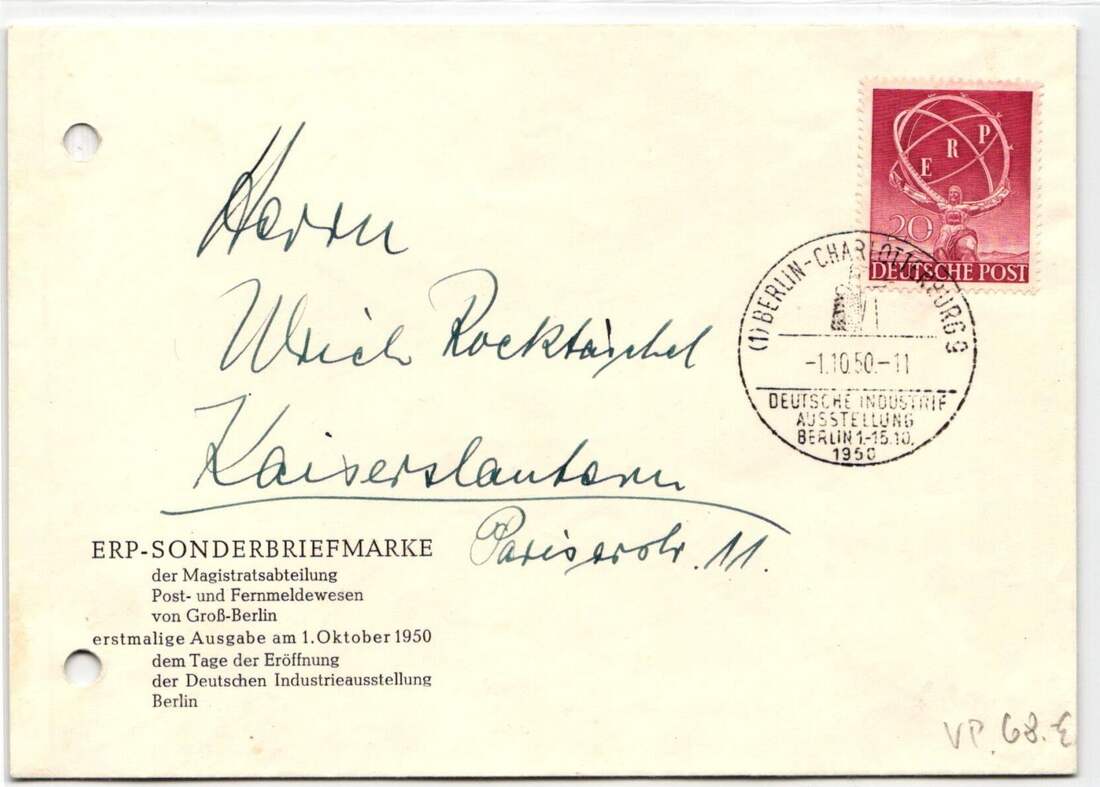 E R P
20
DEUTSCHE POST
(1) BERLIN-CHARLOTTENBURG 9
-1.10.50.-11
DEUTSCHE INDUSTRIE
AUSSTELLUNG
BERLIN 1.-15.10.
1950
Herrn
Ulrich Rocktäschel
Kaiserslautern
Pariserstr. 11.
ERP-SONDERBRIEFMARKE
der Magistratsabteilung
Post- und Fernmeldewesen
von Groß-Berlin
erstmalige Ausgabe am 1. Oktober 1950
dem Tage der Eröffnung
der Deutschen Industrieausstellung
Berlin
VP. 68.€